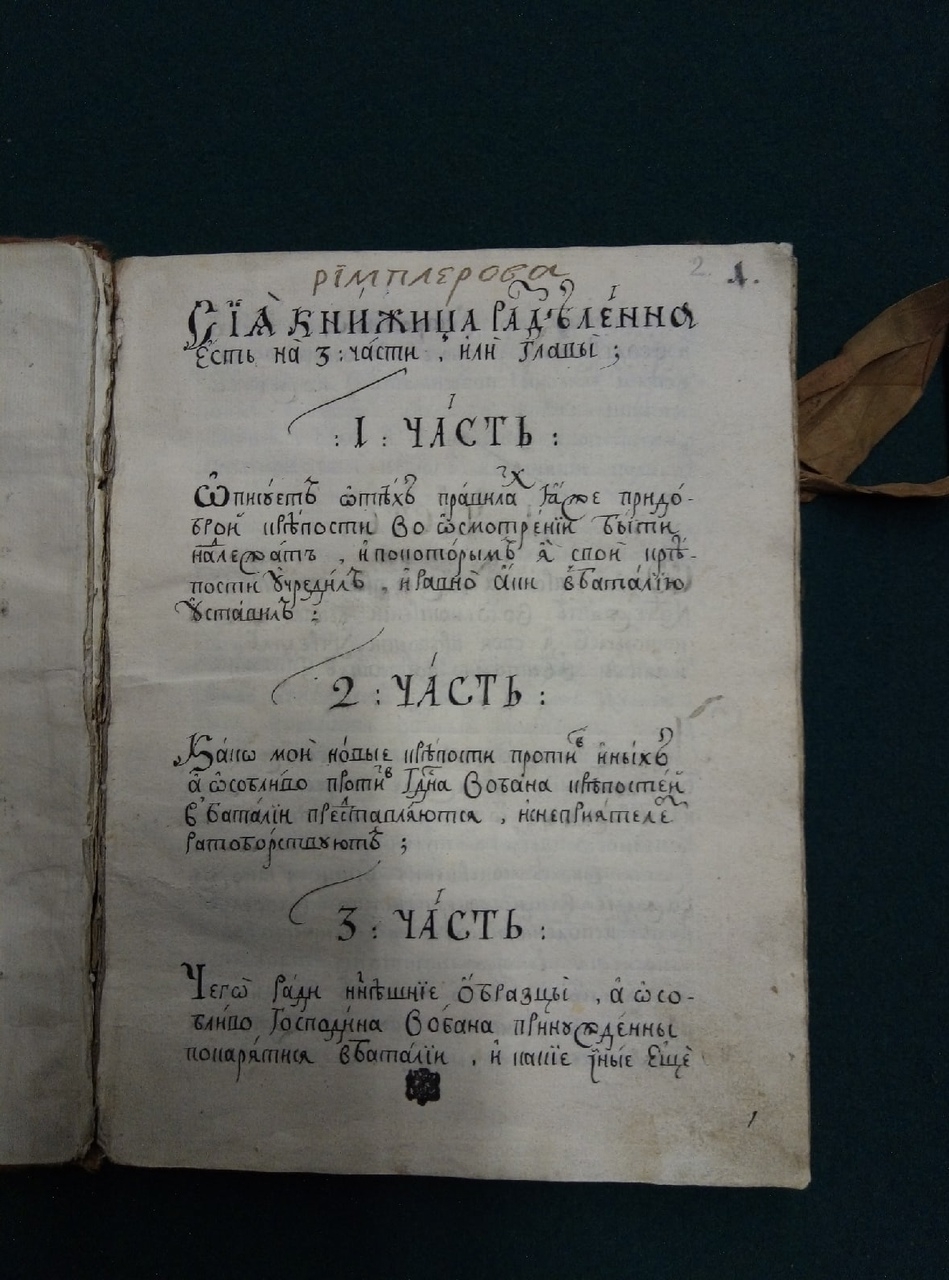 рїмплерова
2. 1.
Сїѧ̀ кни́жица раздѣле́нна
є҆сть на̀ 3: ча́сти , и҆лѝ главы̀ ;
: 1 : ЧА́СТЬ :
Ѡ҆писꙋетъ ѡ҆тѣ́хъ пра́вилахъ ꙗ҆́же придо́-
брой крѣ́пости во ѡ҆смотре́нїи бы́ти
надлежа́тъ , и҆покото́рымъ ѧ҆̀ своѝ крѣ́-
пости ᲂу҆чреди́лъ , и҆равно̀ а҆́ки в҆бата́лїю
ᲂу҆ста́вилъ :
2 : ЧА́СТЬ :
Ка́кѡ моѝ но́вые крѣ́пости проти́в и҆ны́хъ
а҆̀ ѡ҆со́бливо проти́в Г҆дна Воба́на крѣ́посте́й
в҆бата́лїи представлѧ́ютсѧ , и҆снеприѧ́телем
ратобо́рствꙋютъ ;
3 : ЧА́СТЬ :
Чегѡ̀ ра́ди нн҃ѣшнїе ѻ҆бразцы̀ , а҆̀ ѡ҆со-
бливо Господи́на Воба́на принꙋжде́нны
покарѧ́тисѧ в҆бата́лїи , и҆ какїе и҆ны́е є҆щѐ
1